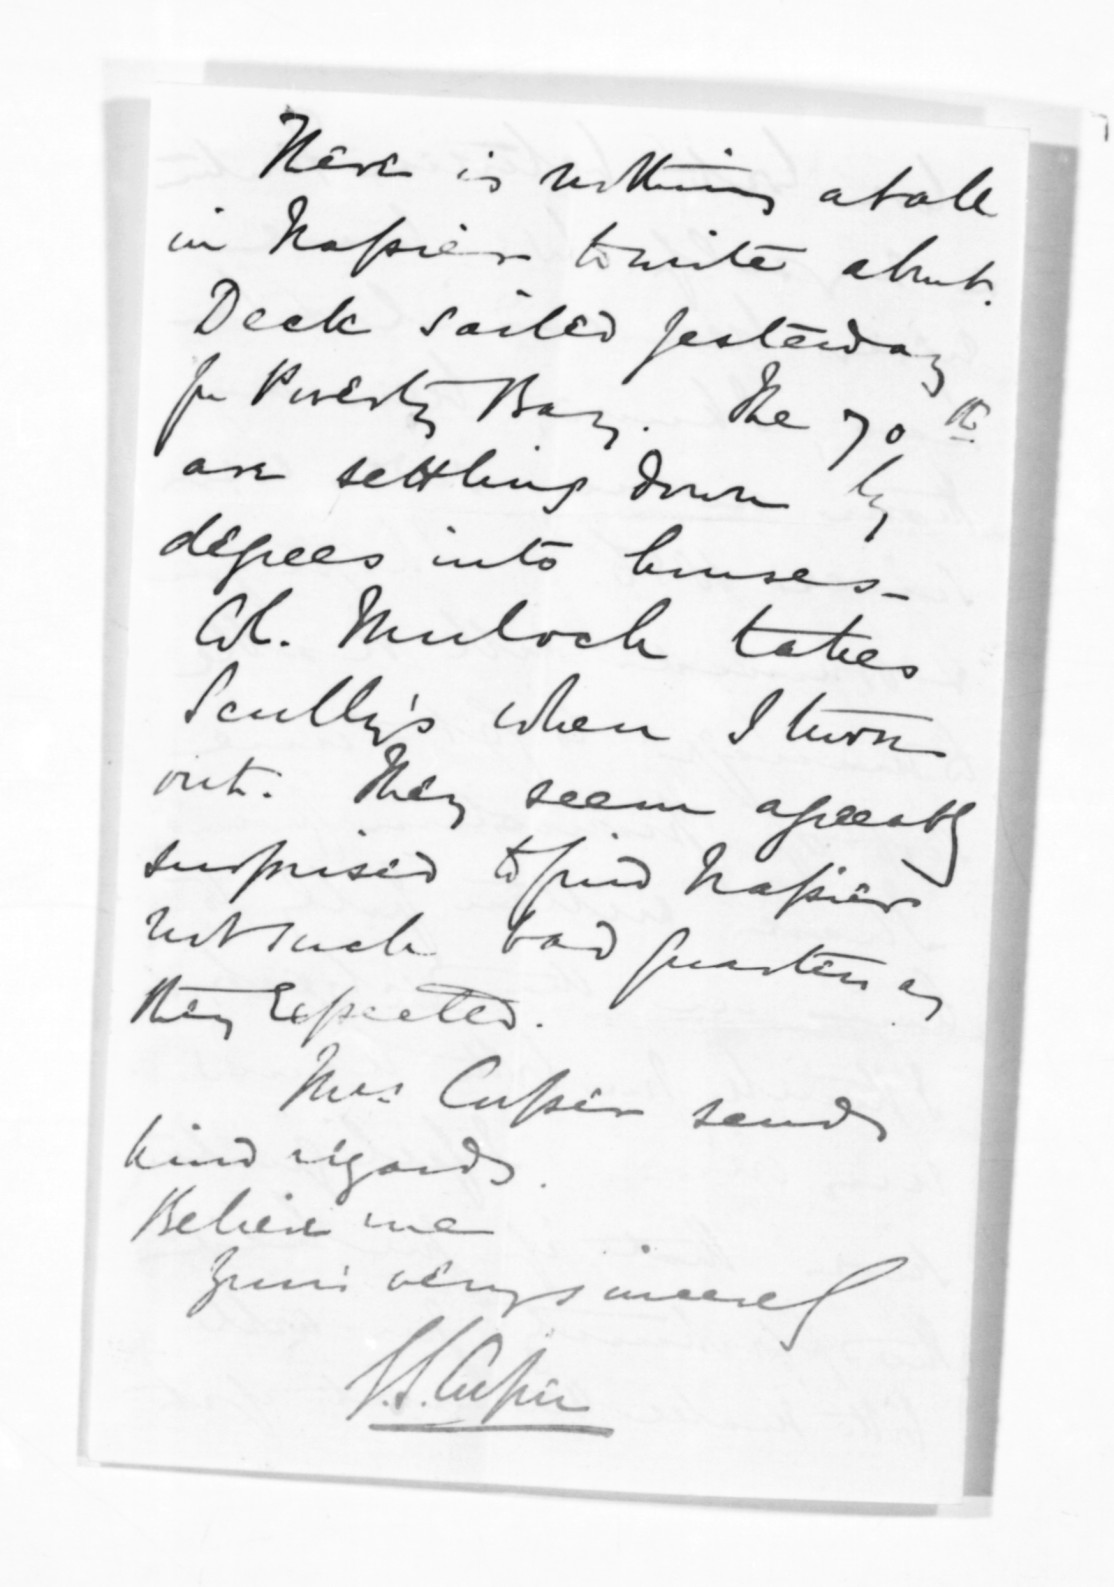 There is nothing at all
in Napier to write about.
Deck sailed yesterday
for Poverty Bay. The 70th
are settling down by
degrees into houses -
Col. Mulock takes
Scully's when I turn
out. They seem agreeably
surprised to find Napier
not such bad quarters as
they expected.
Mrs. Cuper sends
kind regards.
Believe me
Yours very sincerely
Cuper